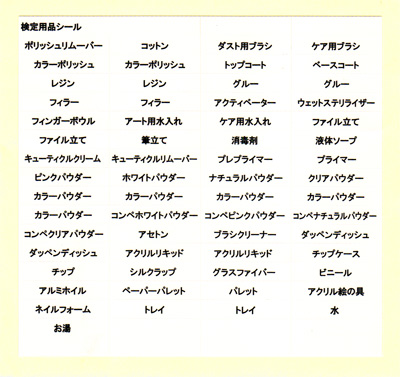 検定用品シール
ポリッシュリムーバー コットン ダスト用ブラシ ケア用ブラシ
カラーポリッシュ カラーポリッシュ トップコート ベースコート
レジン レジン グルー グルー
フィラー フィラー アクティベーター ウェットステリライザー
フィンガーボウル アート用水入れ ケア用水入れ ファイル立て
ファイル立て 筆立て 消毒剤 液体ソープ
キューティクルクリーム キューティクルリムーバー プレプライマー プライマー
ピンクパウダー ホワイトパウダー ナチュラルパウダー クリアパウダー
カラーパウダー カラーパウダー カラーパウダー カラーパウダー
カラーパウダー コンペホワイトパウダー コンペピンクパウダー コンペナチュラルパウダー
コンペクリアパウダー アセトン ブラシクリーナー ダッペンディッシュ
ダッペンディッシュ アクリルリキッド アクリルリキッド チップケース
チップ シルクラップ グラスファイバー ビニール
アルミホイル ペーパーパレット パレット アクリル絵の具
ネイルフォーム トレイ トレイ 水
お湯